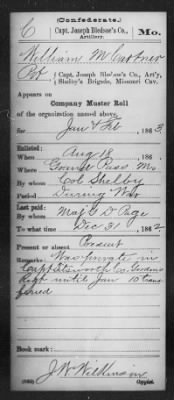 (Confederate.)
C Capt. Joseph Bledsoe's Co., Mo.
Artillery.
William M Gardner
Pvt { Capt. Joseph Bledsoe's Co., Art'y,
Shelby's Brigade, Missouri Cav.
Appears on
Company Muster Roll
of the organization named above
for Jan & Feb, 1863.
Enlisted:
When Aug 18, 186
Where Mo.
By whom Col Shelby
Period During War
Last paid:
By whom Maj G D Page
To what time Dec 31, 1862
Present or absent Present
Remarks: Was private in
Capt Co.
until Jan 10 trans
ferred
Book mark:
J W Wilkinson
Copyist.